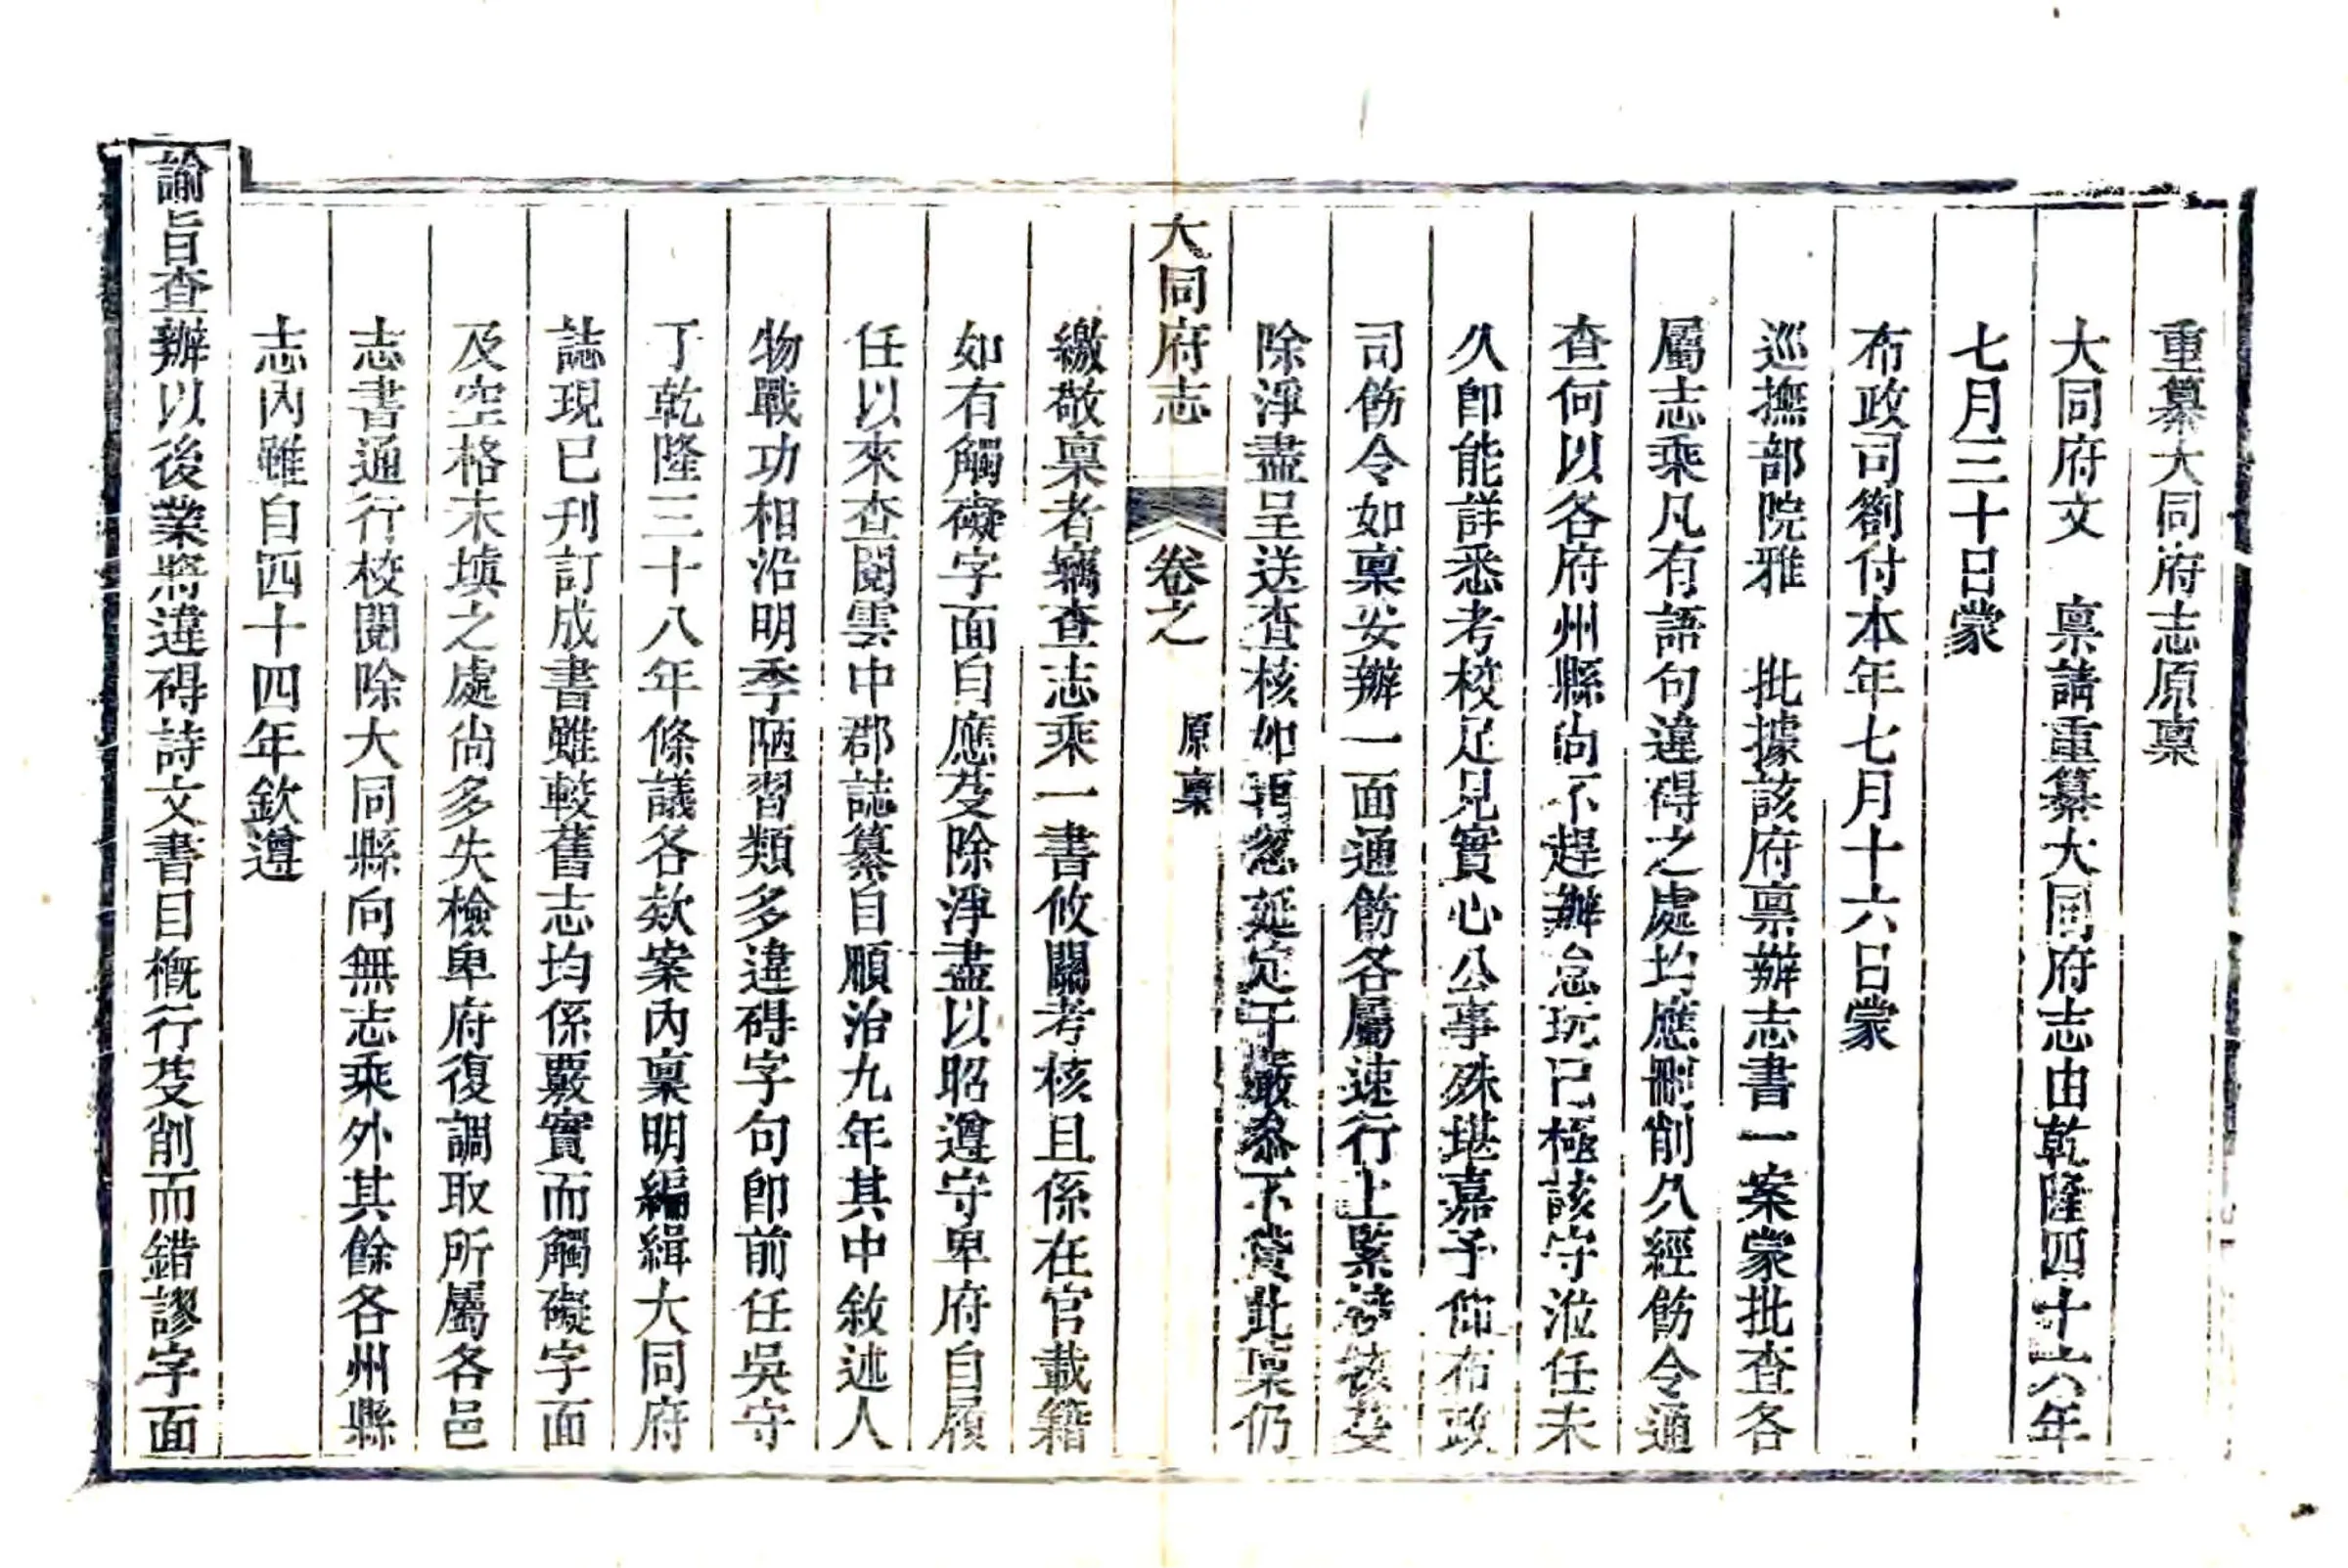 重纂大同府志原稟
大同府文 稟請重纂大同府志由乾隆四十六年
七月三十日蒙
布政司劄付本年七月十六日蒙
巡撫部院雅 批據該府稟辦志書一案蒙批查各
屬志乘凡有語句違碍之處均應刪削久經飭令通
查何以各府州縣尚不趕辦怠玩已極該守涖任未
久即能詳悉考校足見實心公事殊堪嘉予仰布政
司飭令如稟妥辦一面通飭各屬速行上緊芟
除淨盡呈送查核如再忽延定干嚴叅不貸此稟仍
大同府志 卷之 原稟
繳敬稟者竊查志乘一書攸關考核且係在官載籍
如有觸礙字面自應芟除淨盡以昭遵守卑府自履
任以來查閱雲中郡誌纂自順治九年其中敘述人
物戰功相沿明季陋習類多違碍字句即前任吳守
丁乾隆三十八年條議各欵案內稟明編緝大同府
誌現已刋訂成書雖較舊志均係覈實而觸礙字面
及空格未塡之處尚多失檢卑府復調取所屬各邑
志書通行校閱除大同縣向無志乘外其餘各州縣
志內雖自四十四年欽遵
諭旨查辦以後業將違碍詩文書目槪行芟削而錯謬字面